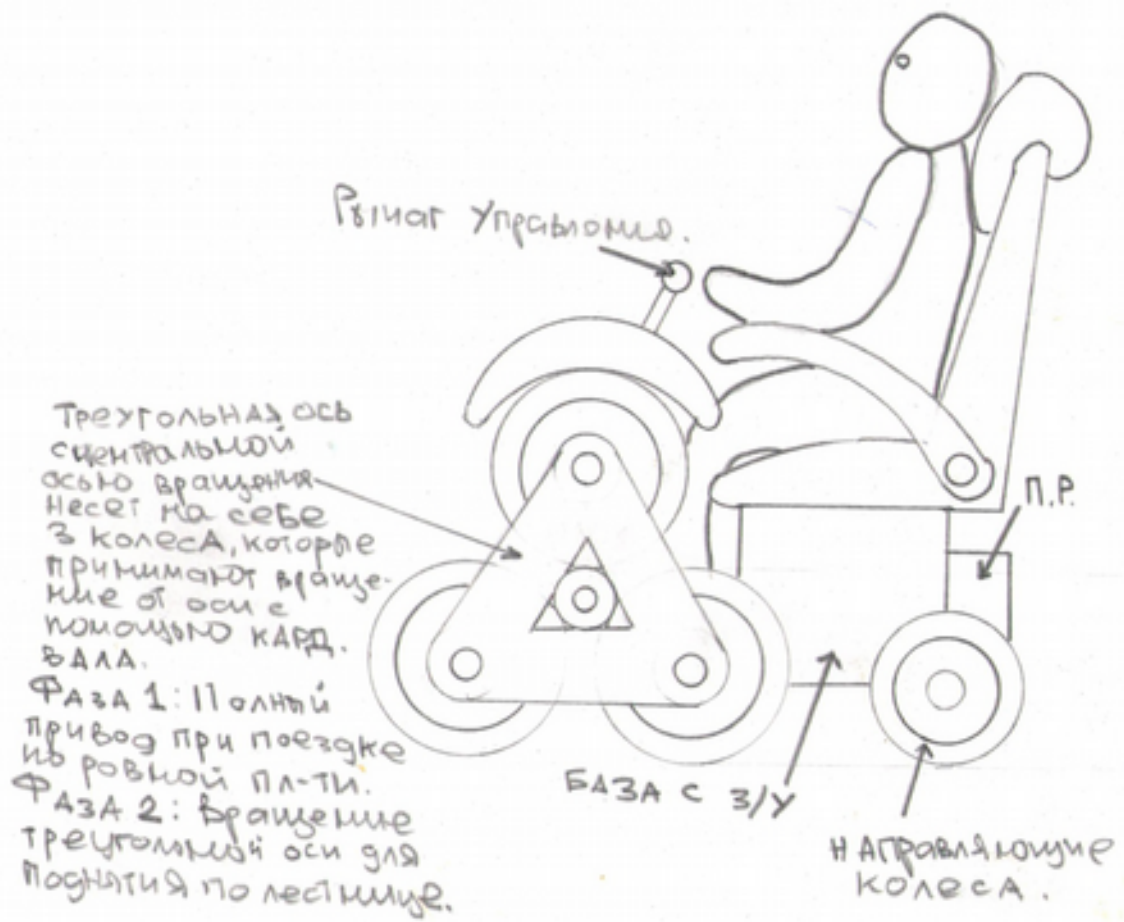 Рычаг Управления.
Треугольная ось
с центральной
осью вращения
несет на себе
3 колеса, которые
принимают враще-
ние от оси с
помощью КАРД.
ВАЛА.
ФАЗА 1: Полный
привод при поездке
по ровной пл-ти.
ФАЗА 2: Вращение
треугольной оси для
поднятия по лестнице.
П.Р.
БАЗА С З/У
НАПРАВЛЯЮЩИЕ
КОЛЕСА.